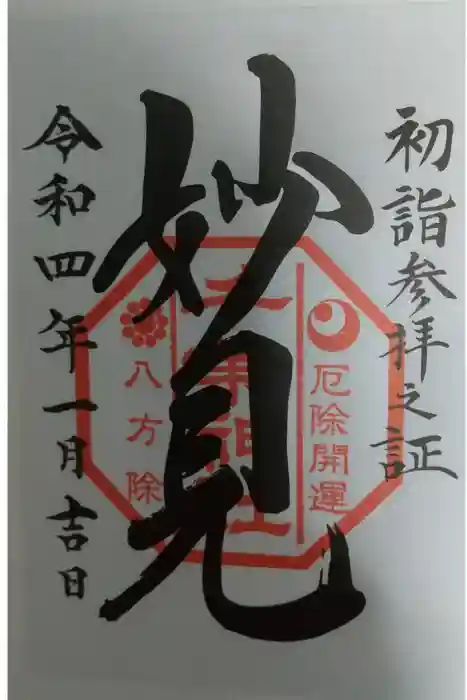 初詣参拝之証
妙見
厄除開運
八方除
令和四年一月吉日